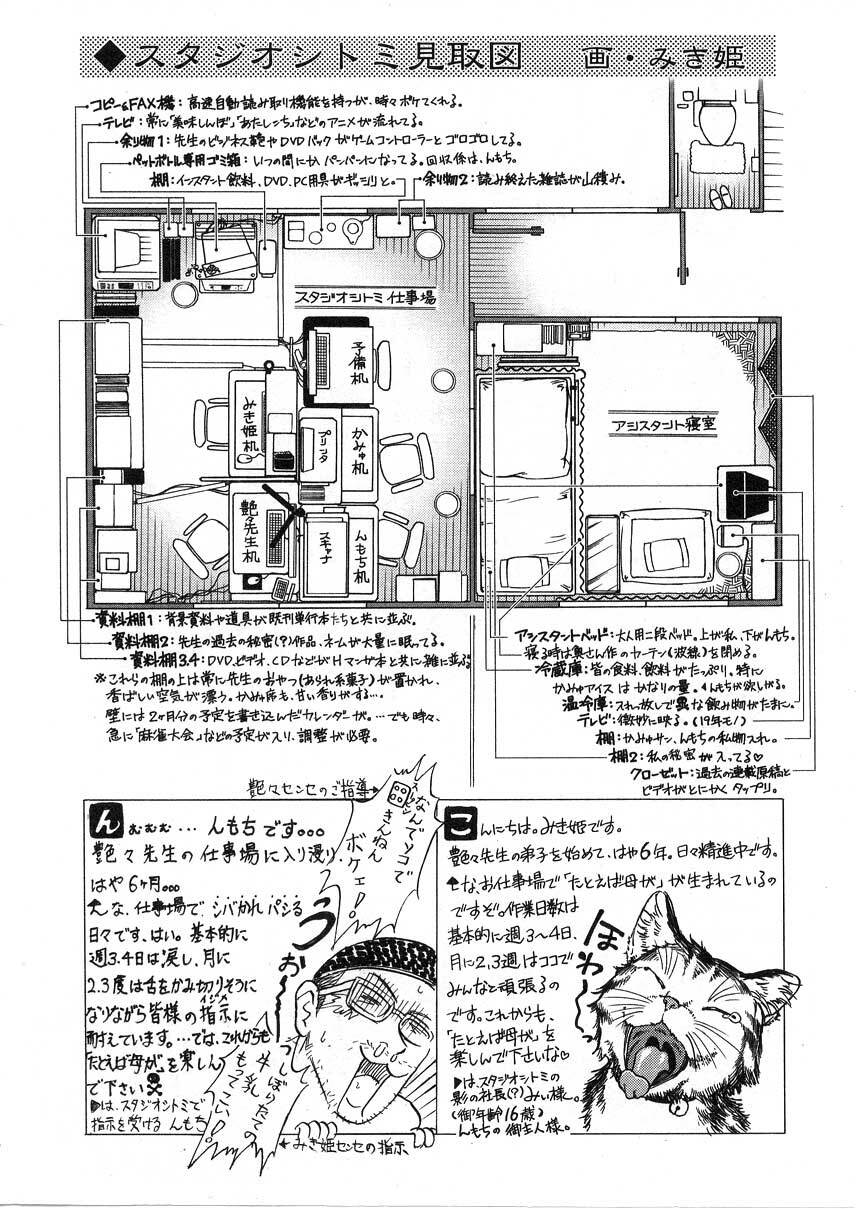 ◆スタジオシトミ見取図　画・みき姫
コピー&FAX機：高速自動読み取り機能を持つが、時々ボケてくれる。
テレビ：常に「美味しんぼ」「あたしンち」などのアニメが流れてる。
余り物1：先生のビジネス鞄やDVDパックがゲームコントローラーとゴロゴロしてる。
ペットボトル専用ゴミ箱：いつの間にかパンパンになってる。回収係は、んもち。
棚：インスタント飲料、DVD、PC用具がギッシリと。
余り物2：読み終えた雑誌が山積み。
スタジオシトミ仕事場
予備机
みき姫机
プリンタ
かみゅ机
艶々先生机
スキャナ
んもち机
アシスタント寝室
資料棚1：背景資料や道具が既刊単行本たちと共に並ぶ。
資料棚2：先生の過去の秘密(?)作品、ネームが大量に眠ってる。
資料棚3.4：DVD、ビデオ、CDなどがHマンガ本と共に雑に並ぶ。
※これらの棚の上は常に先生のおやつ(あられ系菓子)が置かれ、
香ばしい空気が漂う。かみゅ席も、甘い香りがする…。
壁には2ヶ月分の予定を書き込んだカレンダーが。…でも時々、
急に「麻雀大会」などの予定が入り、調整が必要。
アシスタントベッド：大人用二段ベッド。上が私、下がんもち。
寝る時は奥さん作のカーテン(波線)を閉める。
冷蔵庫：皆の食料、飲料がたっぷり。特に
かみゅアイスはかなりの量。んもちが欲しがる。
温冷庫：スれっ放しで異な飲み物がたまに。
テレビ：微妙に映る。(19年モノ)
棚：かみゅサン、んもちの私物入れ。
棚2：私の秘密が入ってる♡
クローゼット：過去の連載原稿と
ビデオがとにかくタップリ。
艶々センセのご指導→
なんでソコで
きんねん
ボケェ！
んむむむ…んもちです。。。
艶々先生の仕事場に入り浸り、
はや6ヶ月。。。
な、仕事場でシバかれパシる
日々です、はい。基本的に
週3.4日は戻し、月に
2.3度は舌をかみ切りそうに
なりながら皆様の指示(イジメ)に
耐えています。…では、これからも
「たとえば母が」を楽しんで下さい
▶は、スタジオシトミで
指示を受けるんもち
うおーっ
しぼりたての
牛乳
もってこい！
←みき姫センセの指示
こんにちは。みき姫です。
艶々先生の弟子を始めて、はや6年。日々精進中です。
な、お仕事場で「たとえば母が」が生まれているの
ですぞ。作業日数は
基本的に週3〜4日、
月に2,3週はココで
みんなと頑張るの
です。これからも、
「たとえば母が」を
楽しんで下さいな♡
▶は、スタジオシトミの
影の社長(?)みぃ様。
(御年齢16歳)
んもちの御主人様。
ほわ〜っ